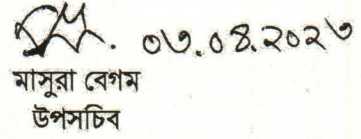 ০৩.০৪.২০২৩
মাসুরা বেগম
উপসচিব